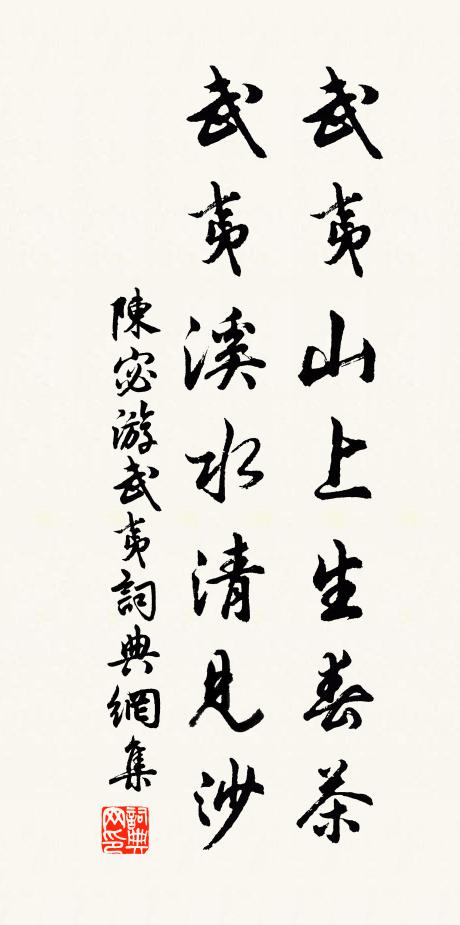 武夷山上生春茶
武夷溪水清見沙
陳宓游武夷詞典網集
詞典网印